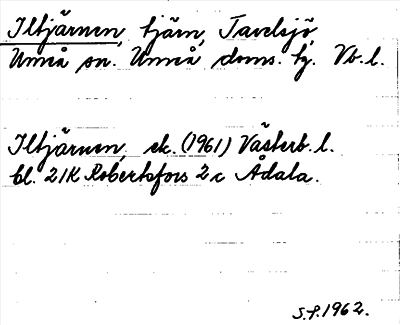 Iltjärnen, tjärn, Tavelsjö,
Umeå sn. Umeå doms. tg. Vb. l.
Iltjärnen, ek. (1961) Västerb. l.
bl. 21K Robertsfors 2c Ådala.
S.f. 1962.